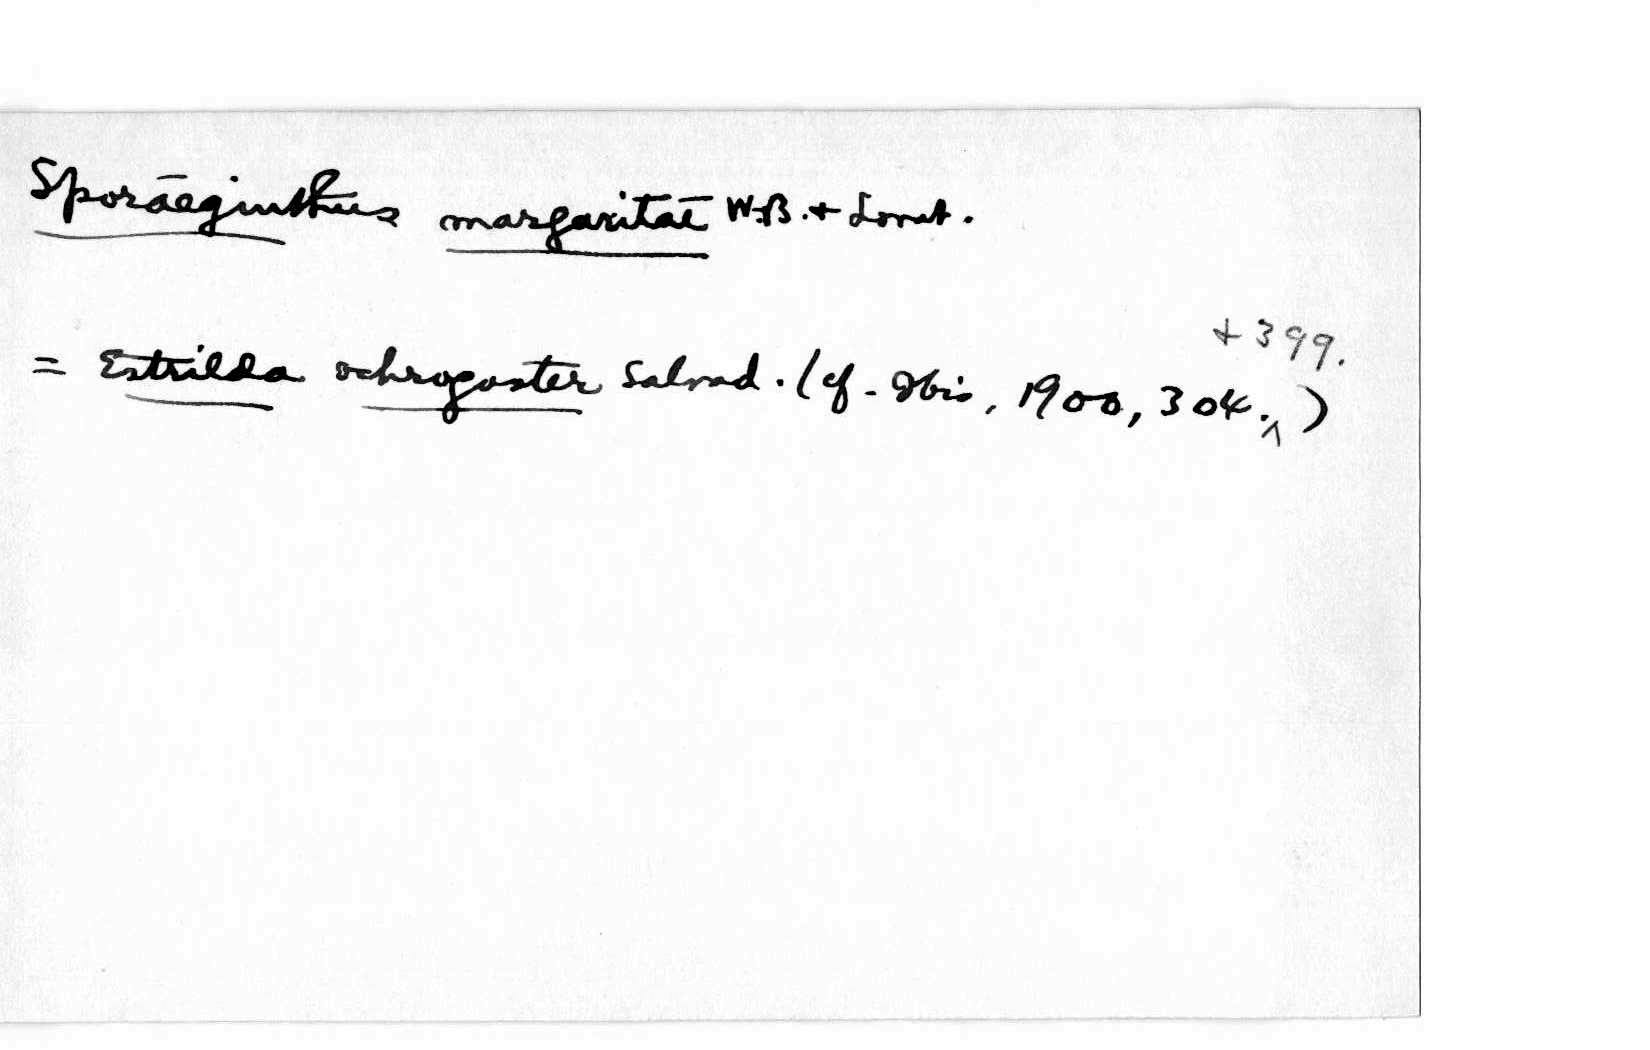 Sporaeginthus margaritae W.-B. + Lovat.
+ 399.
= Estrilda ochrogaster Salvad. (cf. Ibis, 1900, 304. ^ )